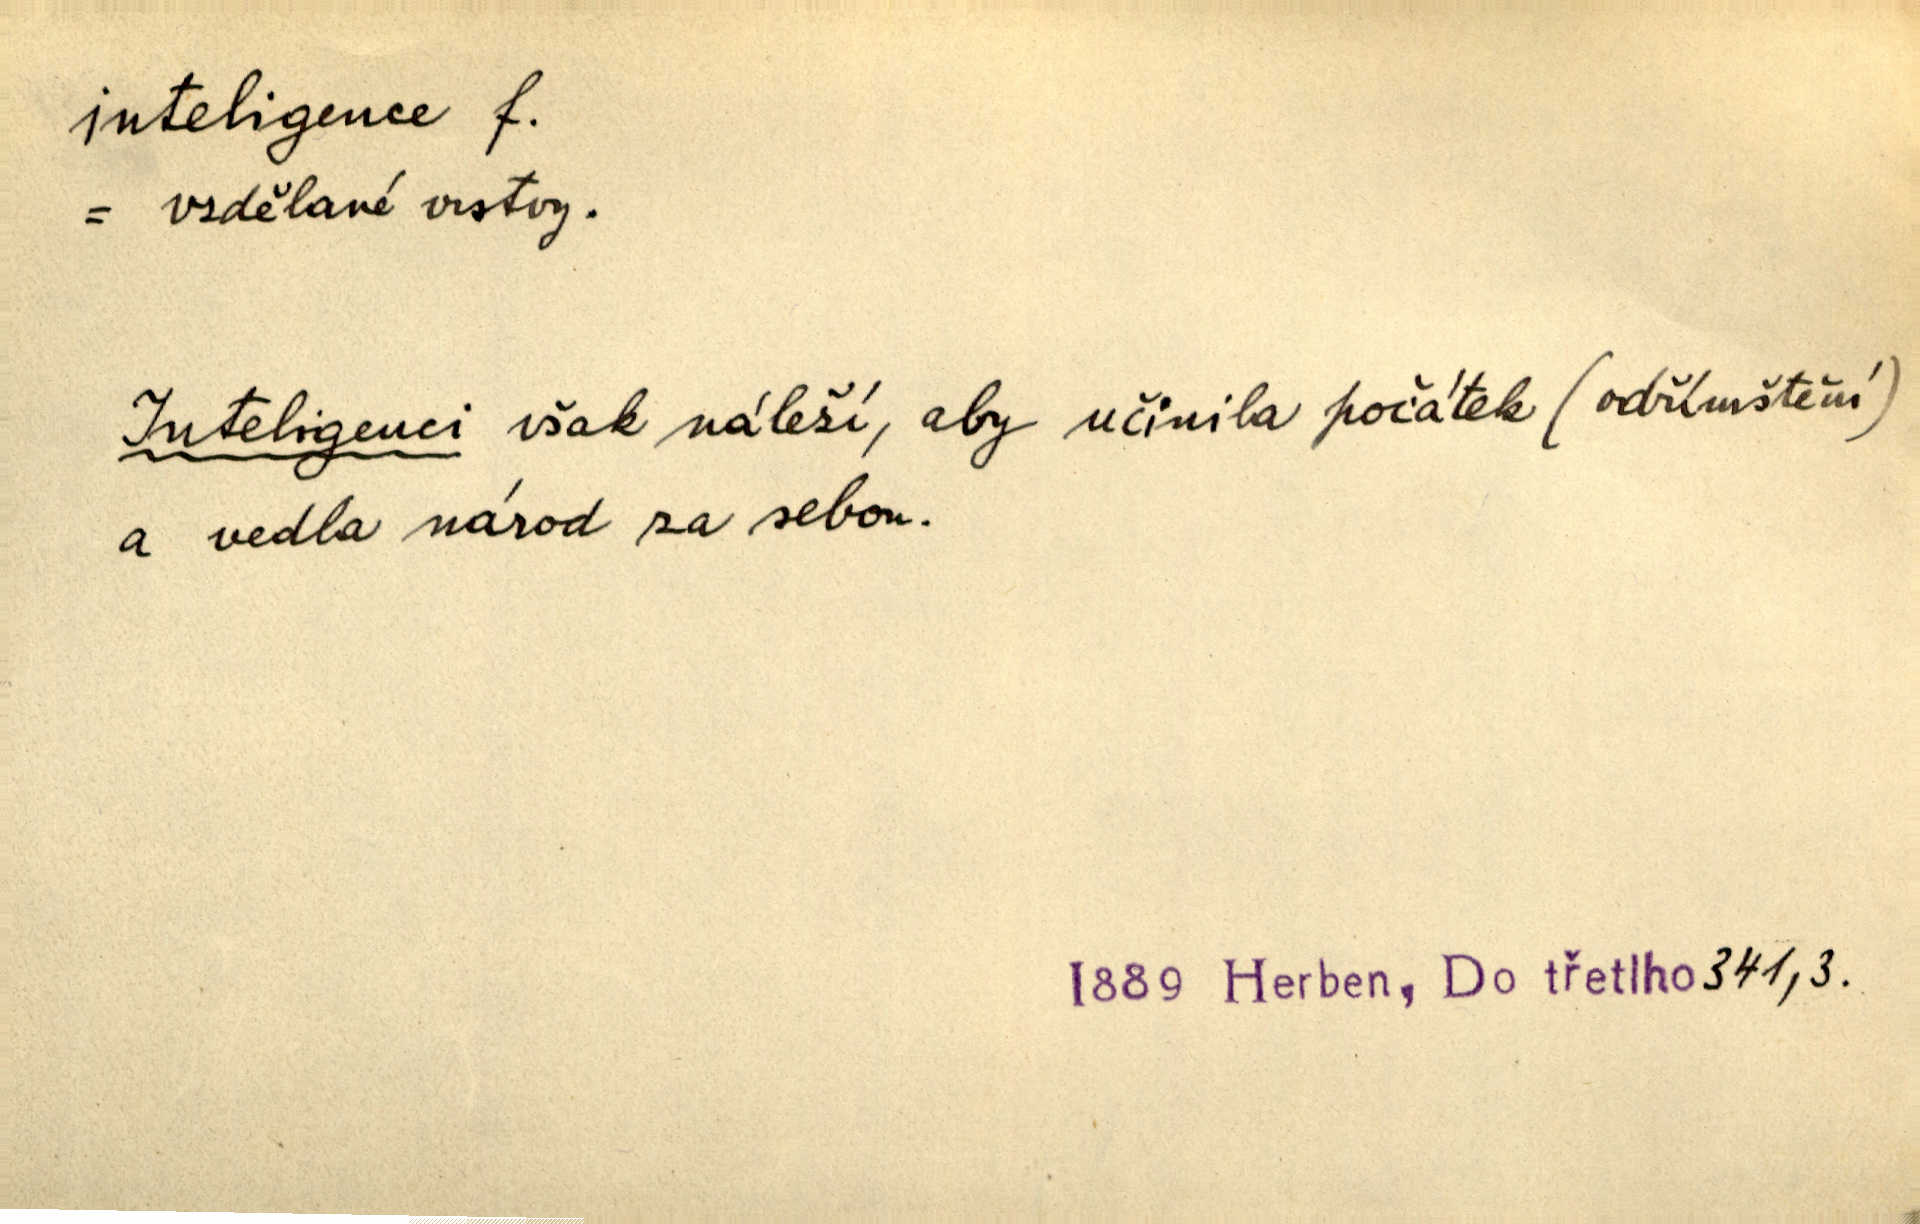 inteligence f.
= vzdělané vrstvy.
Inteligenci však náleží, aby učinila počátek (odřímštění)
a vedla národ za sebou.
1889 Herben, Do třetího 341,3.